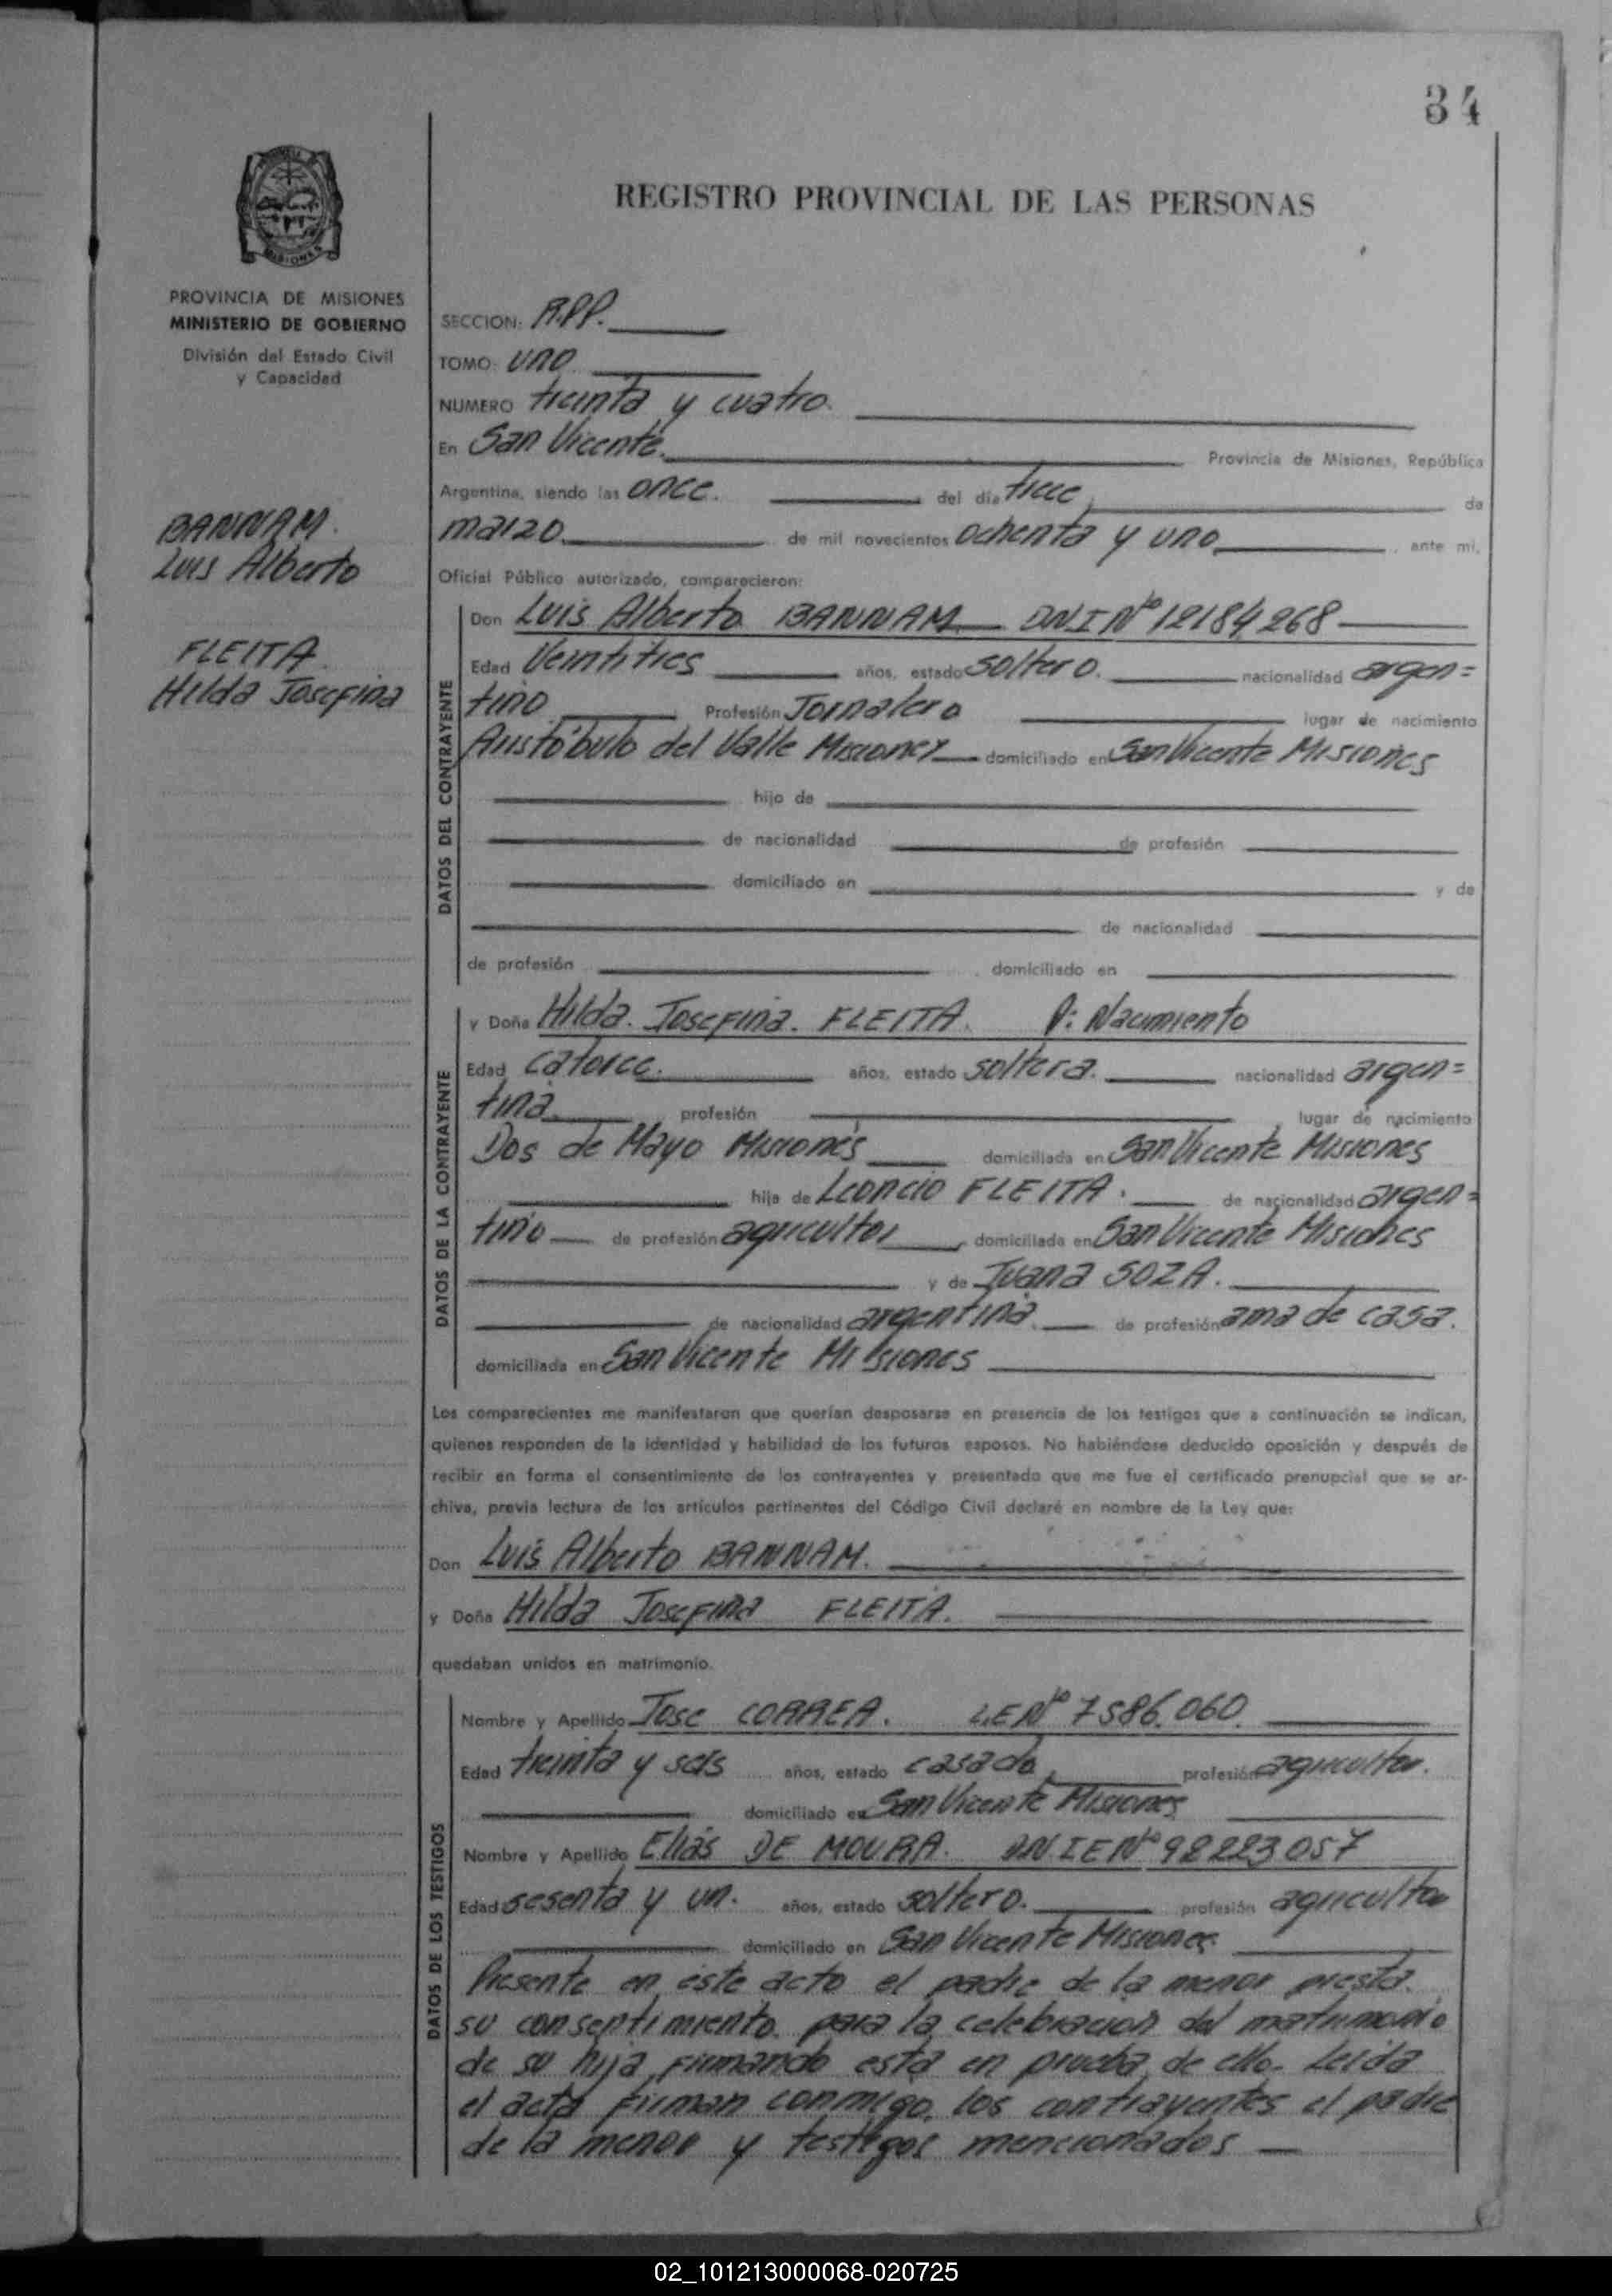 34
REGISTRO PROVINCIAL DE LAS PERSONAS
PROVINCIA DE MISIONES
MINISTERIO DE GOBIERNO
División del Estado Civil
y Capacidad
BANNAM.
Luis Alberto
FLEITA
Hilda Josefina
SECCION: R.P.P.
TOMO: uno
NUMERO treinta y cuatro.
En San Vicente. Provincia de Misiones, República
Argentina, siendo las once. del día trece de
marzo de mil novecientos ochenta y uno ante mi,
Oficial Público autorizado, comparecieron:
DATOS DEL CONTRAYENTE
Don Luis Alberto BANNAM DNI Nº 12184268
Edad Veintitres años, estado soltero. nacionalidad argen=
tino Profesión Jornalero lugar de nacimiento
Aristóbulo del Valle Misiones domiciliado en San Vicente Misiones
hijo de
de nacionalidad de profesión
domiciliado en y de
de nacionalidad
de profesión domiciliado en
DATOS DE LA CONTRAYENTE
y Doña Hilda. Josefina. FLEITA. P: Nacimiento
Edad catorce. años, estado soltera. nacionalidad argen=
tina profesión lugar de nacimiento
Dos de Mayo Misiones domiciliada en San Vicente Misiones
hija de Leoncio FLEITA. de nacionalidad argen=
tino de profesión agricultor domiciliada en San Vicente Misiones
y de Juana SOZA.
de nacionalidad argentina. de profesión ama de casa.
domiciliada en San Vicente Misiones
Los comparecientes me manifestaron que querían desposarse en presencia de los testigos que a continuación se indican,
quienes responden de la identidad y habilidad de los futuros esposos. No habiéndose deducido oposición y después de
recibir en forma el consentimiento de los contrayentes y presentado que me fue el certificado prenupcial que se ar-
chiva, previa lectura de los artículos pertinentes del Código Civil declaré en nombre de la Ley que:
Don Luis Alberto BANNAM.
y Doña Hilda Josefina FLEITA.
quedaban unidos en matrimonio.
DATOS DE LOS TESTIGOS
Nombre y Apellido Jose CORREA. L.E Nº 7586.060.
Edad treinta y seis años, estado casado, profesión agricultor.
domiciliado en San Vicente Misiones
Nombre y Apellido Elias DE MOURA. DNIE Nº 92223057
Edad sesenta y un. años, estado soltero. profesión agricultor
domiciliado en San Vicente Misiones.
Presente en éste acto el padre de la menor presta
su consentimiento. para la celebracion del matrimonio
de su hija, firmando esta en prueba de ello. Leida
el acta firman conmigo, los contrayentes el padre
de la menor y testigos mencionados
02_101213000068-020725